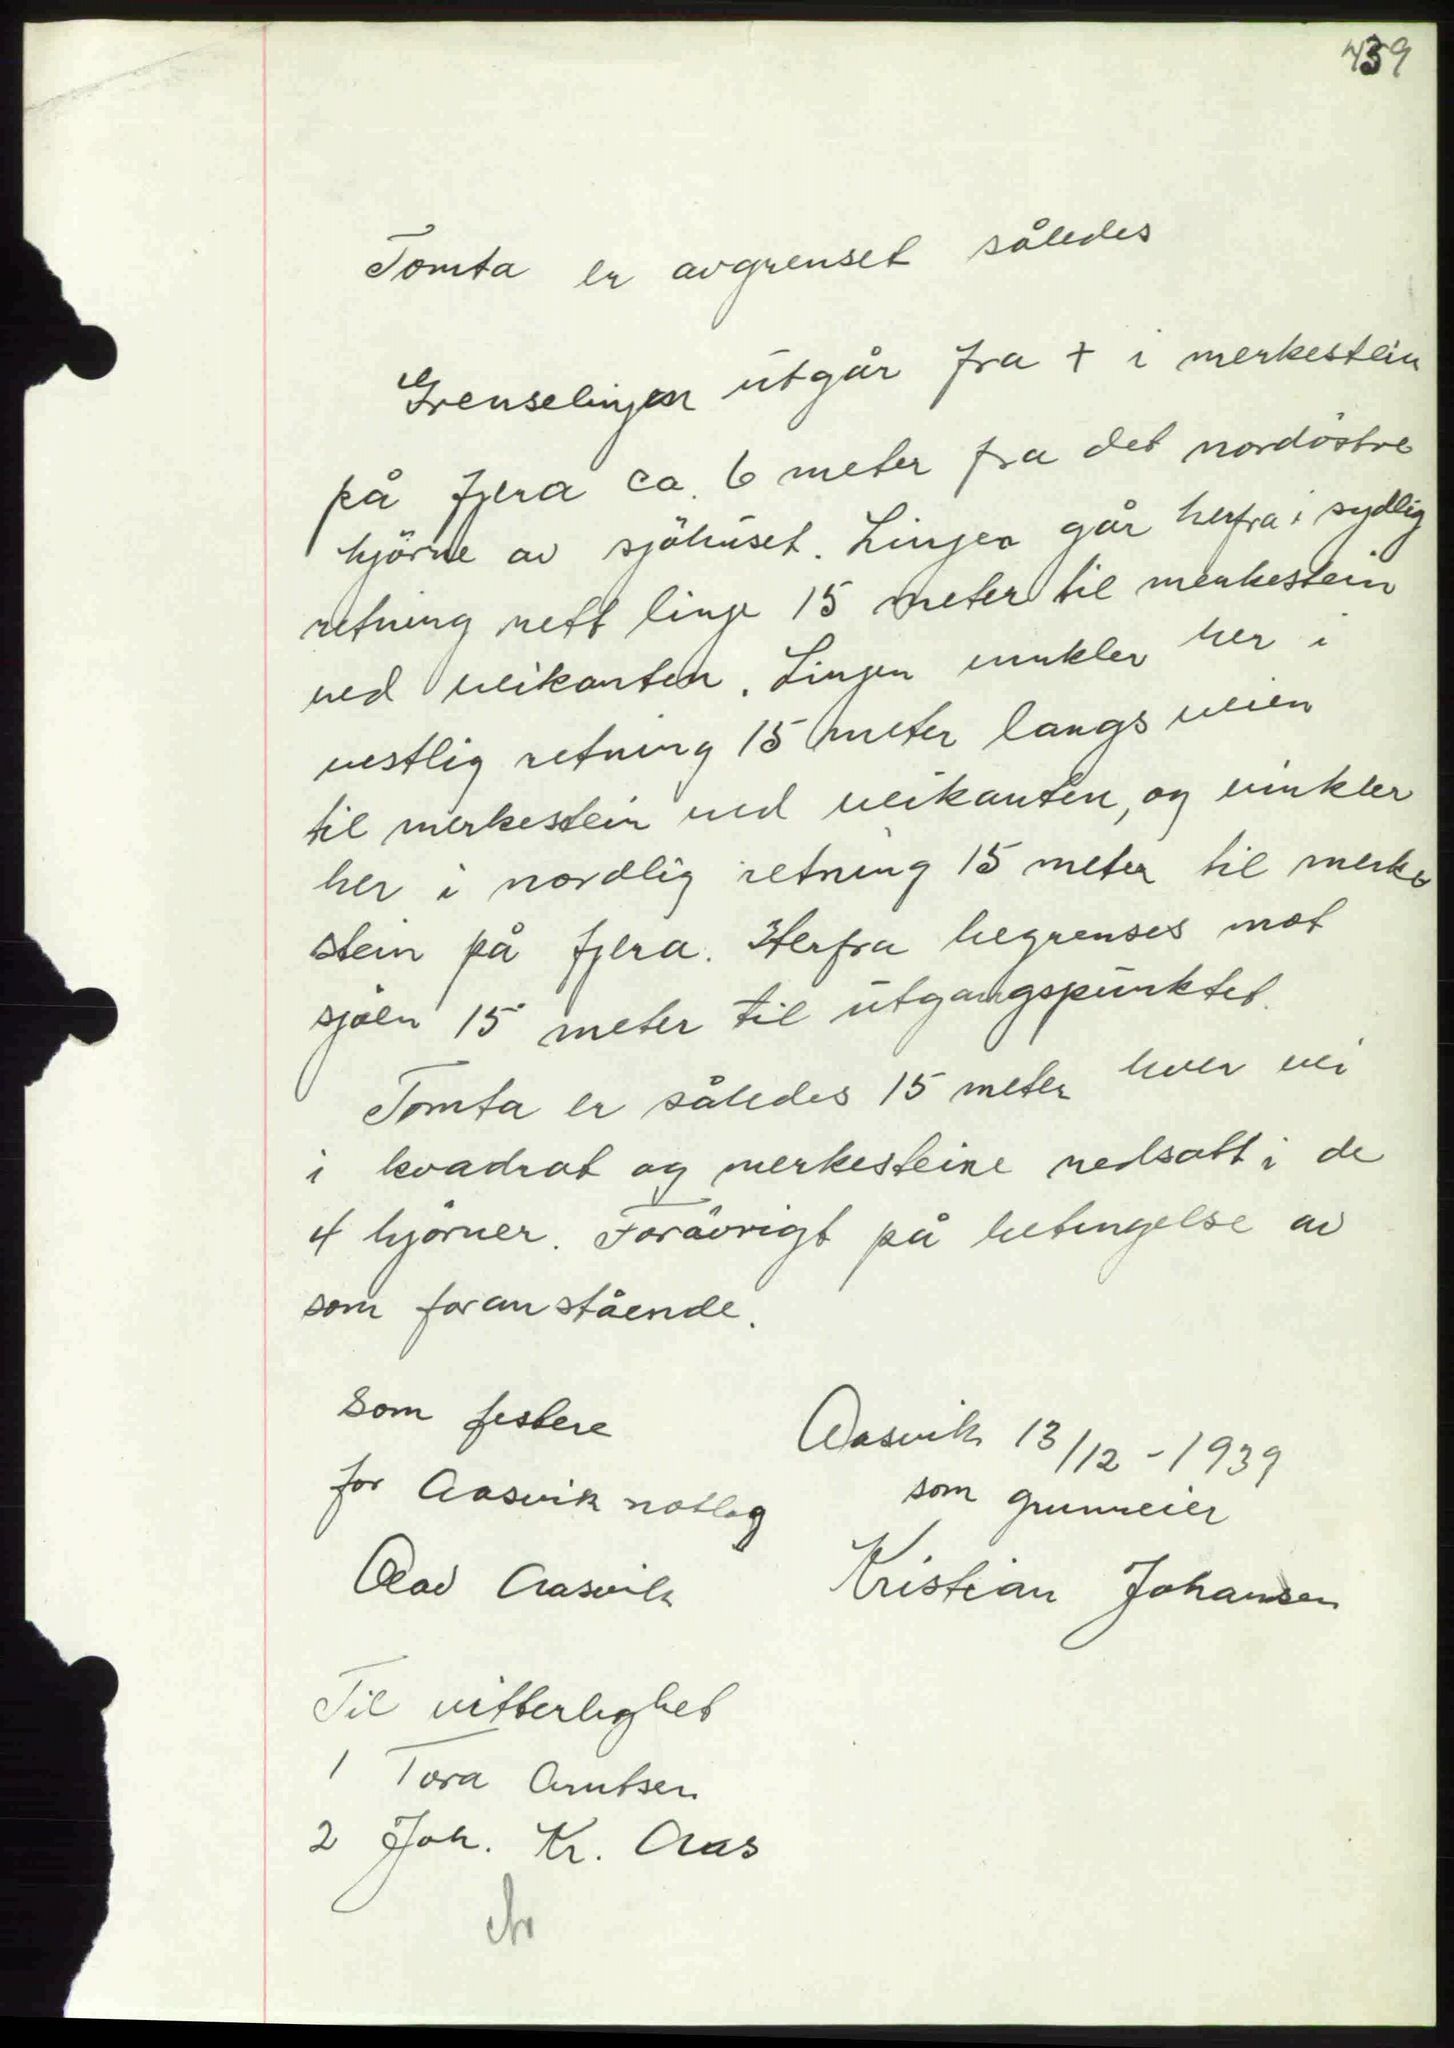 439
Tomta er avgrenset således
Grenselinjen utgår fra + i merkestein
på fjera ca. 6 meter fra det nordöstre
hjörne av sjöhuset. Linjen går herfra i sydlig
retning rett linje 15 meter til merkestein
ved veikanten. Linjen vinkler her i
vestlig retning 15 meter langs veien
til merkestein ved veikanten, og vinkler
her i nordlig retning 15 meter til merke
stein på fjera. Herfra begrenses mot
sjöen 15 meter til utgangspunktet.
Tomta er således 15 meter hver vei
i kvadrat og merkesteine nedsatt i de
4 hjörner. Forövrigt på betingelse av
som foranstående.
Som festere
for Aasvik notlag
Olav Aasvik
Aasvik 13/12 - 1939
som grunneier
Kristian Johansen
Til vitterlighet
1 Tora Arntsen
2 Joh. Kr. Aas